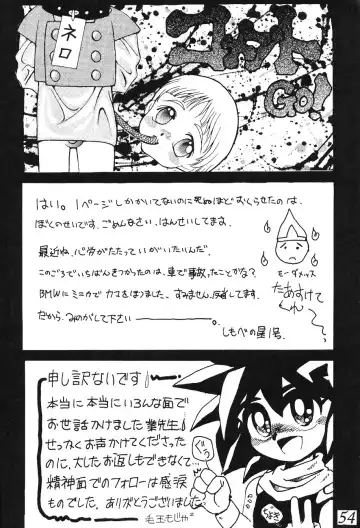 ネロ
GO!
はい。1ページしかかいてないのに死ぬほどおくらせたのは、
ぼくのせいです。ごめんなさい。はんせいしてます。
最近ね、心労がたたっていがいたいんだ。
このごろでいちばんきつかったのは、車で事故ったことかな?
BMWにミニカでカマをほりました。すみません。反省してます。
だから、みのがして下さい――――。
しもべの星1号。
モーダメッス
たあすけてくんへ~
申し訳ないです♪
本当に本当にいろんな面で
お世話かけました 業先生♪
せっかくお声かけてくださった
のに、大したお返しもできなくて…
精神面でのフォローは感涙
ものでした。ありがとうございました
毛玉もじゃ
ぐっ
54